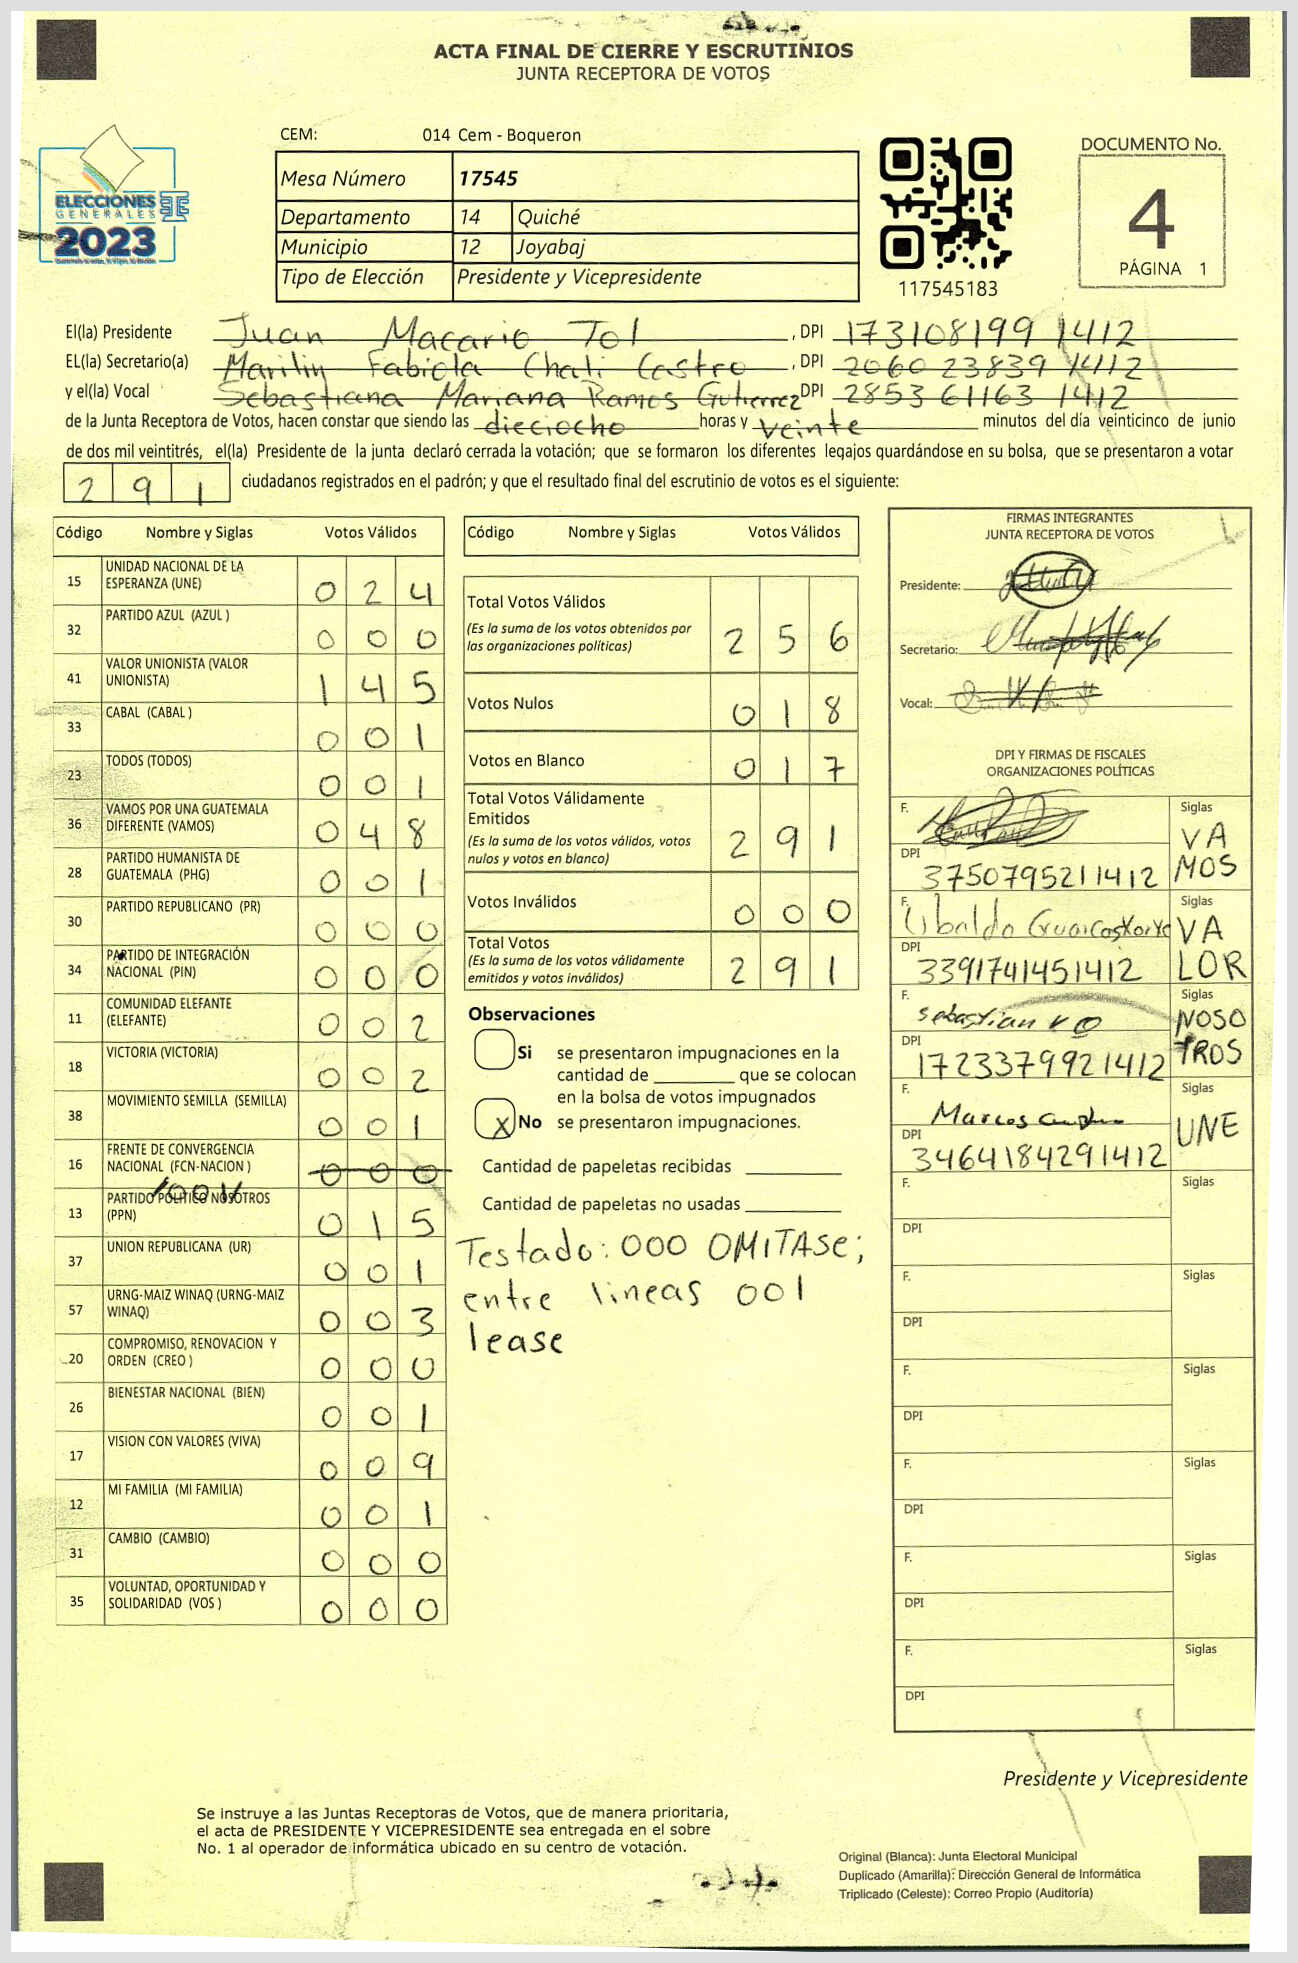 ACTA FINAL DE CIERRE Y ESCRUTINIOS
JUNTA RECEPTORA DE VOTOS
CEM: 014 Cem - Boqueron
DOCUMENTO No.
4
PÁGINA 1
ELECCIONES
GENERALES
2023
Mesa Número 17545
Departamento 14 Quiché
Municipio 12 Joyabaj
Tipo de Elección Presidente y Vicepresidente
117545183
El(la) Presidente Juan Macario Tol , DPI 173108199 1412
EL(la) Secretario(a) Marilin Fabiola Chali Castro , DPI 2060 23839 1412
y el(la) Vocal Sebastiana Mariana Ramos Gutierrez DPI 2853 61163 1412
de la Junta Receptora de Votos, hacen constar que siendo las dieciocho horas y veinte minutos del día veinticinco de junio
de dos mil veintitrés, el(la) Presidente de la junta declaró cerrada la votación; que se formaron los diferentes legajos quardándose en su bolsa, que se presentaron a votar
2 9 1 ciudadanos registrados en el padrón; y que el resultado final del escrutinio de votos es el siguiente:
Código Nombre y Siglas Votos Válidos
15 UNIDAD NACIONAL DE LA ESPERANZA (UNE) 0 2 4
32 PARTIDO AZUL (AZUL ) 0 0 0
41 VALOR UNIONISTA (VALOR UNIONISTA) 1 4 5
33 CABAL (CABAL ) 0 0 1
23 TODOS (TODOS) 0 0 1
36 VAMOS POR UNA GUATEMALA DIFERENTE (VAMOS) 0 4 8
28 PARTIDO HUMANISTA DE GUATEMALA (PHG) 0 0 1
30 PARTIDO REPUBLICANO (PR) 0 0 0
34 PARTIDO DE INTEGRACIÓN NACIONAL (PIN) 0 0 0
11 COMUNIDAD ELEFANTE (ELEFANTE) 0 0 2
18 VICTORIA (VICTORIA) 0 0 2
38 MOVIMIENTO SEMILLA (SEMILLA) 0 0 1
16 FRENTE DE CONVERGENCIA NACIONAL (FCN-NACION ) 0 0 0
/001/
13 PARTIDO POLITICO NOSOTROS (PPN) 0 1 5
37 UNION REPUBLICANA (UR) 0 0 1
57 URNG-MAIZ WINAQ (URNG-MAIZ WINAQ) 0 0 3
20 COMPROMISO, RENOVACION Y ORDEN (CREO ) 0 0 0
26 BIENESTAR NACIONAL (BIEN) 0 0 1
17 VISION CON VALORES (VIVA) 0 0 9
12 MI FAMILIA (MI FAMILIA) 0 0 1
31 CAMBIO (CAMBIO) 0 0 0
35 VOLUNTAD, OPORTUNIDAD Y SOLIDARIDAD (VOS ) 0 0 0
Código Nombre y Siglas Votos Válidos
Total Votos Válidos 2 5 6
(Es la suma de los votos obtenidos por
las organizaciones políticas)
Votos Nulos 0 1 8
Votos en Blanco 0 1 7
Total Votos Válidamente
Emitidos 2 9 1
(Es la suma de los votos válidos, votos
nulos y votos en blanco)
Votos Inválidos 0 0 0
Total Votos 2 9 1
(Es la suma de los votos válidamente
emitidos y votos inválidos)
Observaciones
Si se presentaron impugnaciones en la
cantidad de ________ que se colocan
en la bolsa de votos impugnados
X No se presentaron impugnaciones.
Cantidad de papeletas recibidas
Cantidad de papeletas no usadas
Testado: 000 OMITASE;
entre lineas 001
lease
FIRMAS INTEGRANTES
JUNTA RECEPTORA DE VOTOS
Presidente:
Secretario:
Vocal:
DPI Y FIRMAS DE FISCALES
ORGANIZACIONES POLÍTICAS
F. Siglas VA MOS
DPI 3750795211412
F. Ubaldo Siglas VA LOR
DPI 3391741451412
F. Sebastian Siglas NOSO TROS
DPI 1723379921412
F. Marcos Siglas UNE
DPI 3464184291412
F. Siglas
DPI
F. Siglas
DPI
F. Siglas
DPI
F. Siglas
DPI
F. Siglas
DPI
F. Siglas
DPI
Presidente y Vicepresidente
Se instruye a las Juntas Receptoras de Votos, que de manera prioritaria,
el acta de PRESIDENTE Y VICEPRESIDENTE sea entregada en el sobre
No. 1 al operador de informática ubicado en su centro de votación.
Original (Blanca): Junta Electoral Municipal
Duplicado (Amarilla): Dirección General de Informática
Triplicado (Celeste): Correo Propio (Auditoría)